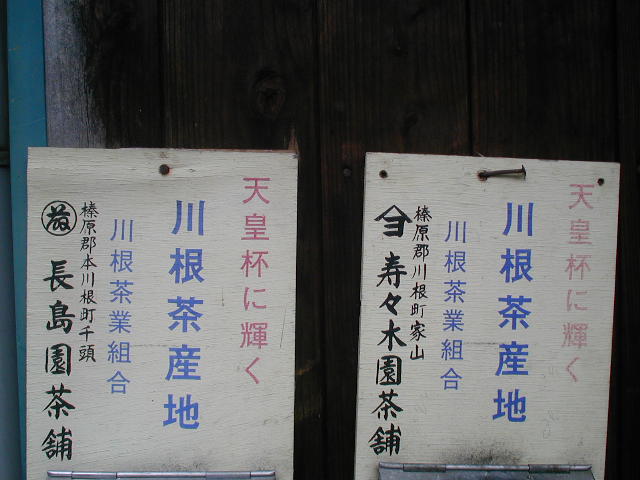 天皇杯に輝く
川根茶産地
川根茶業組合
榛原郡川根町家山
寿々木園茶舗
天皇杯に輝く
川根茶産地
川根茶業組合
榛原郡本川根町千頭
長島園茶舗